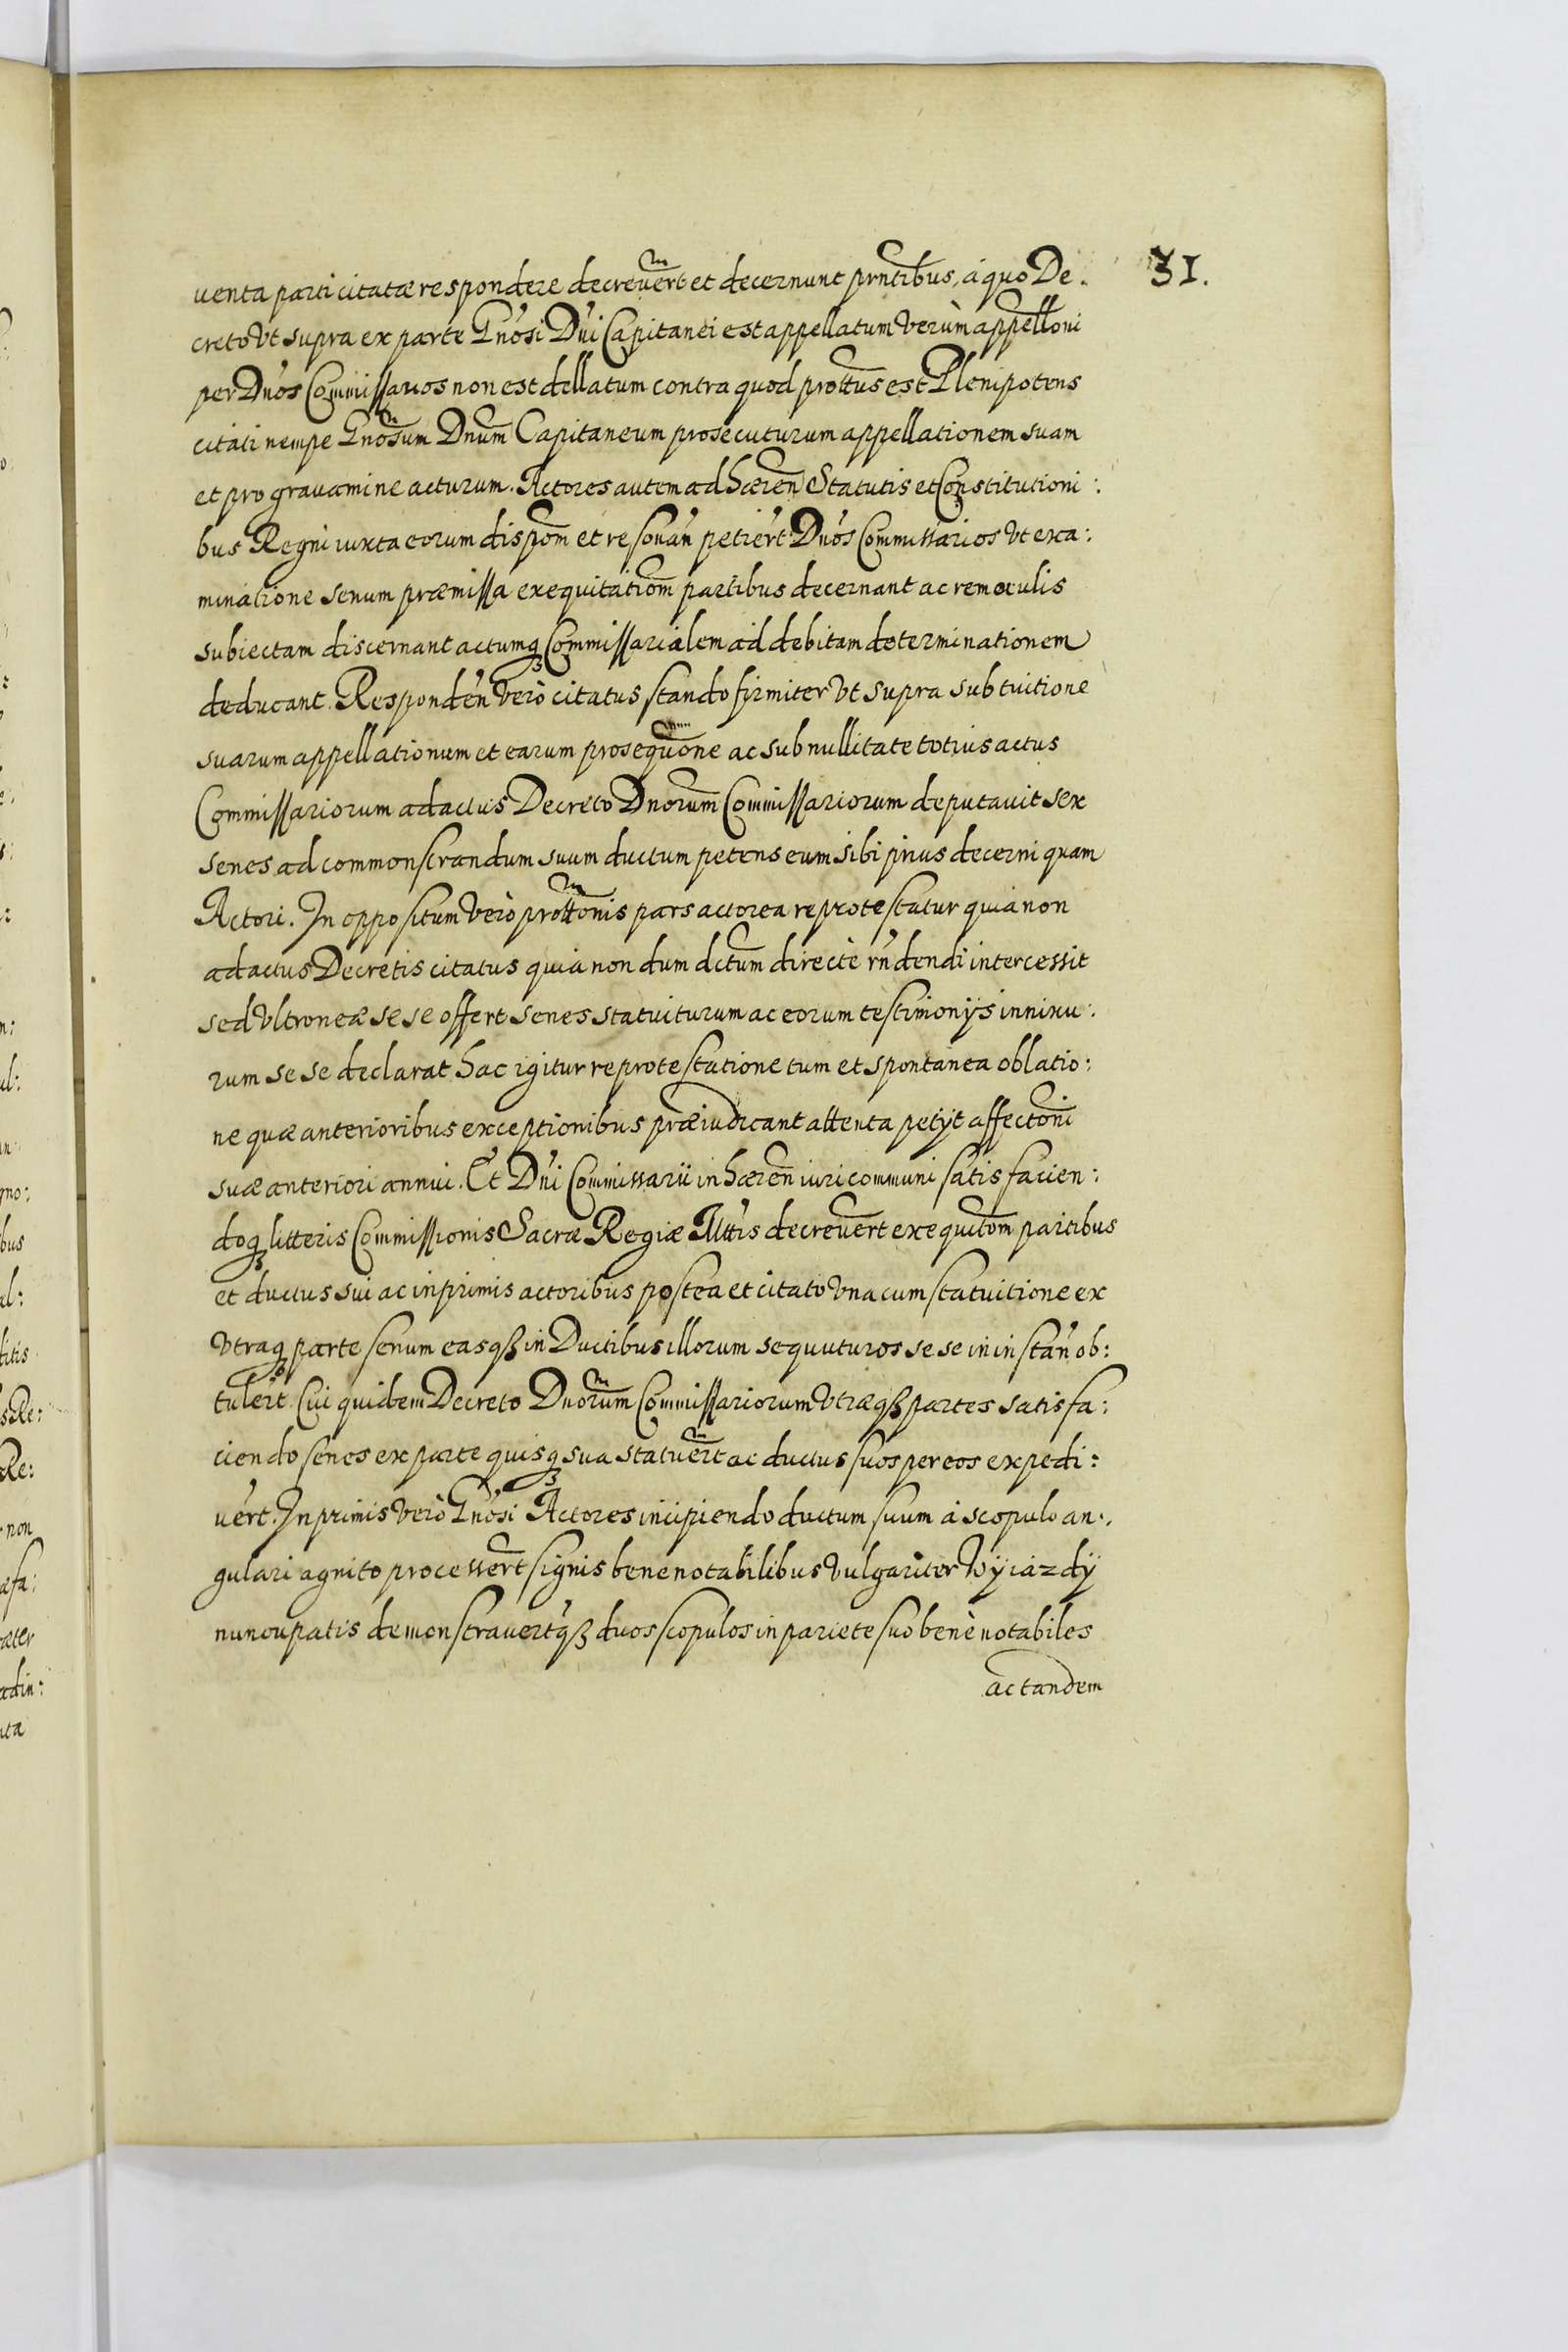 31.
uenta parti citatæ respondere decreuert et decernunt prntibus, á quo De.
creto Vt supra ex parte Gnosi Dni Capitanei est appellatum Verùm appelloni
per Dnos Commissarios non est dellatum contra quod prottus est Plenipotens
citati nempe Gnosum Dnum Capitaneum prosecuturum appellationem suam
et pro grauamine acturum. Actores autem ad hæren Statutis et Constitutioni:
bus Regni iuxta eorum dispom et resonan petiert Dnos Commissarios Vt exa:
minatione senum præmissa exequitationi partibus decernant ac rem oculis
subiectam discernant actumq Commissarialem ad debitam determinationem
deducant. Responden Verò citatus stando firmiter Vt supra sub tuitione
suarum appellationum et earum prosequone ac sub nullitate totius actus
Commissariorum adactus Decreto Dnorum Commissariorum deputauit sex
senes ad commonstrandum suum ductum petens eum sibi prius decerni quam
Actori. In oppositum Verò prottonis pars actorea reprotestatur quia non
adactus Decretis citatus quia non dum dctum directè rndendi intercessit
sed Vltroneæ se se offert senes statuiturum ac eorum testimonijs innixu:
rum se se declarat hac igitur reprotestatione tum et spontanea oblatio:
ne quæ anterioribus exceptionibus præiudicant attenta petijt affectoni
suæ anteriori annui. Et Dni Commissarii in hæren iuri communi satis facien:
doq litteris Commissionis Sacræ Regiæ Mttis decreuert exequitom partibus
et ductus sui ac inprimis actoribus postea et citato Vna cum statuitione ex
Vtraq parte senum easqß in Ductibus illorum sequuturos se se in instan ob:
tulert. Cui quidem Decreto Dnorum Commissariorum Vtræqß partes satisfa:
ciendo senes ex parte quisq sua statuert ac ductus suos per eos expedi:
uert. Inprimis Verò Gnosi Actores incipiendo ductum suum à scopulo an:
gulari agnito processert signis bene notabilibus Vulgariter Wÿiazdÿ
nuncupatis demonstrauertqß duos scopulos in pariete suo benè notabiles
ac tandem